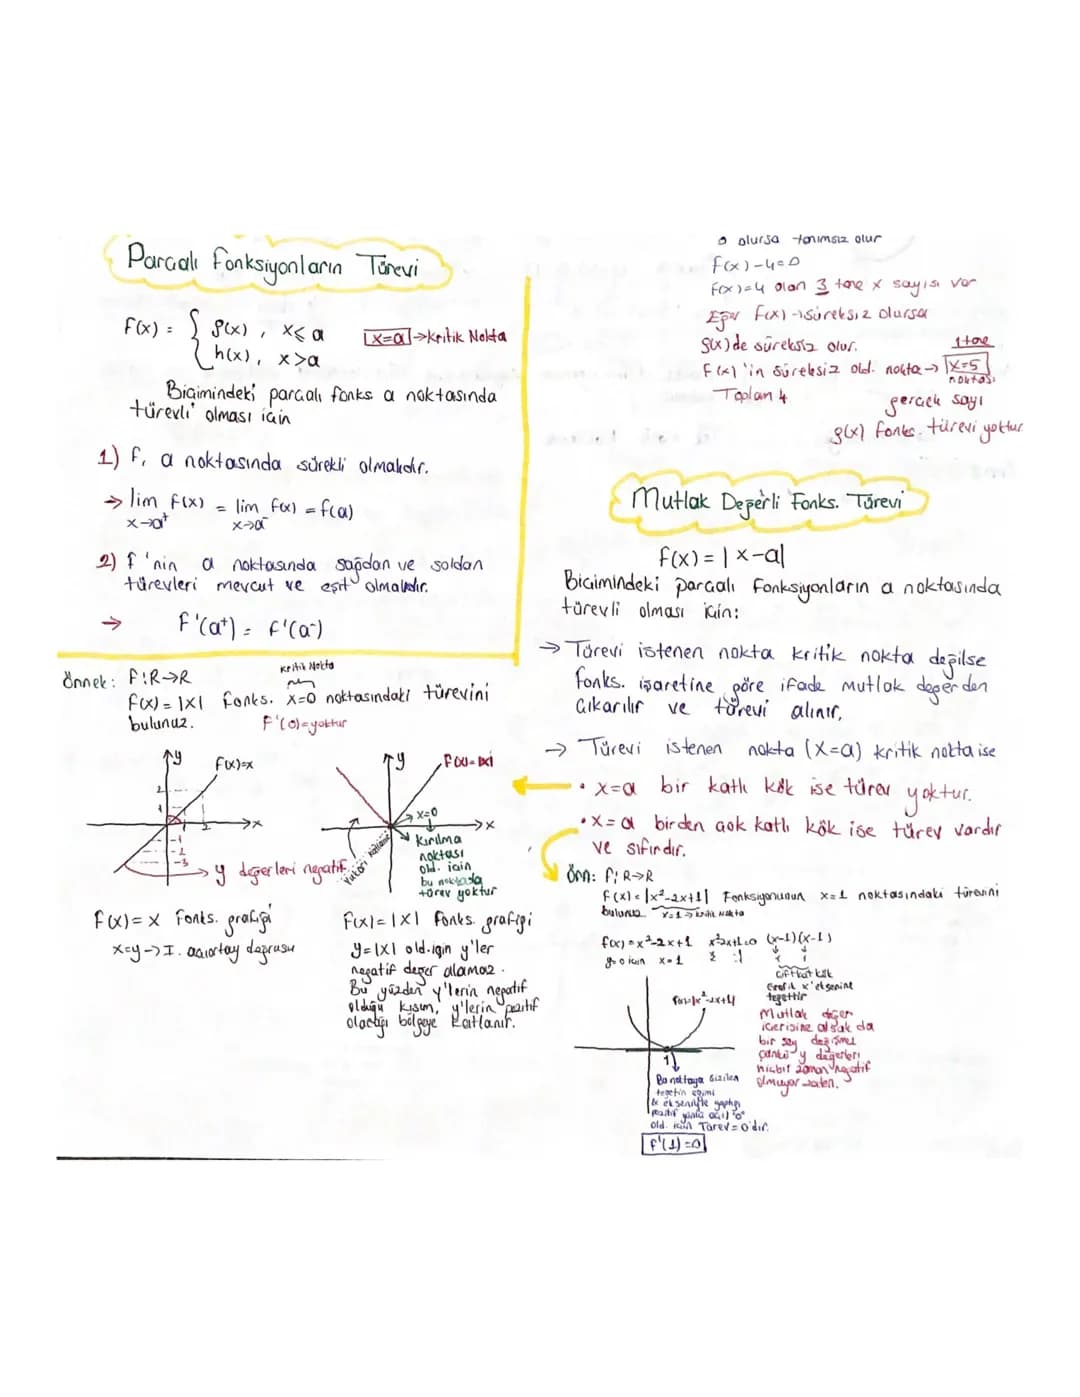 Parçalı Fonksiyonların Türevi
f(x) = { g(x), x≤a
h(x), x>a
x=a → Kritik Nokta
Biçimindeki parçalı fonks a noktasında
türevli olması için
1) f, a noktasında sürekli olmalıdır.
→ lim f(x) = lim f(x) = f(a)
x→a⁺ x→a⁻
2) f'nin a noktasında sağdan ve soldan
türevleri mevcut ve eşit olmalıdır.
→ f'(a⁺) = f'(a⁻)
Örnek: f:R→R
Kritik Nokta
f(x) = |x| fonks. x=0 noktasındaki türevini
bulunuz. f'(0)=yoktur
y
f(x)=x
2
1
1 2
x
-1
-2
-3
y değerleri negatif
f(x)= x fonks. grafiği
x=y → I. açıortay doğrusu
y
f(x)=|x|
x=0
x
Yukarı katlanır
Kırılma
noktası
old. için
bu noktada
türev yoktur
f(x)=|x| fonks. grafiği
y=|x| old.için y'ler
negatif değer alamaz.
Bu yüzden y'lerin negatif
olduğu kısım, y'lerin pozitif
olacağı bölgeye katlanır.
0 olursa tanımsız olur
f(x)-4=0
f(x)=4 olan 3 tane x sayısı var
Eğer f(x) → süreksiz olursa
g(x) de süreksiz olur.
1 tane
f(x)'in süreksiz old. nokta → x=5
noktası
Toplam 4 gerçek sayı
g(x) fonks. türevi yoktur
Mutlak Değerli Fonks. Türevi
f(x) = |x-a|
Biçimindeki parçalı fonksiyonların a noktasında
türevli olması için:
→ Türevi istenen nokta kritik nokta değilse
fonks. işaretine göre ifade mutlak değerden
çıkarılır ve türevi alınır.
→ Türevi istenen nokta (x=a) kritik nokta ise
• x=a bir katlı kök ise türev yoktur.
• x=a birden çok katlı kök ise türev vardır
ve sıfırdır.
Örn: f:R→R
f(x) = |x²-2x+1| fonksiyonunun x=1 noktasındaki türevini
bulunuz. x=1 → kritik nokta
f(x)=x²-2x+1 x²-2x+1=0 (x-1)(x-1)
y=0 için x=1
1 1
Çift kat kök
Grafik x eksenine
teğettir
Mutlak değer
içerisine alsak da
bir şey değişmez
çünkü y değerleri
hiçbir zaman negatif
olmuyor zaten.
f(x)=|x²-2x+1|
1
Bu noktaya çizilen
teğetin eğimi
x ekseniyle yaptığı
pozitif yönlü açı "0"
old. için Türev=0'dır.
f'(1)=0